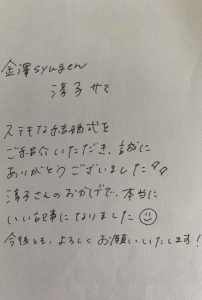 金澤syugen
淳子サマ
ステキな結婚式を
ご紹介いただき、誠に
ありがとうございました
淳子さんのおかげで、本当に
いい記事になりました☺
今後とも、よろしくお願いいたします!